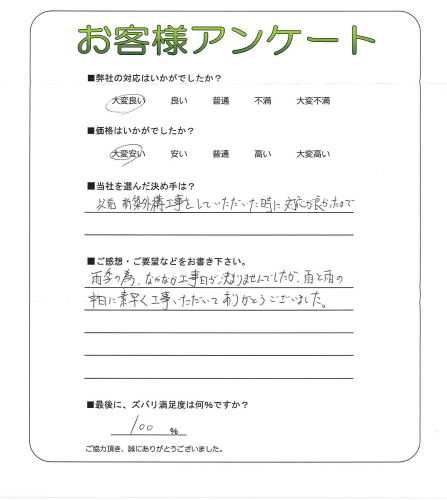 お客様アンケート
■弊社の対応はいかがでしたか?
大変良い 良い 普通 不満 大変不満
■価格はいかがでしたか?
大変安い 安い 普通 高い 大変高い
■当社を選んだ決め手は?
以前 新築外構工事をしていただいた時に対応が良かったので
■ご感想・ご要望などをお書き下さい。
雨季の為、なかなか工事日が決まりませんでしたが、雨と雨の
中日に素早く工事いただいてありがとうございました。
■最後に、ズバリ満足度は何%ですか?
100 %
ご協力頂き、誠にありがとうございました。